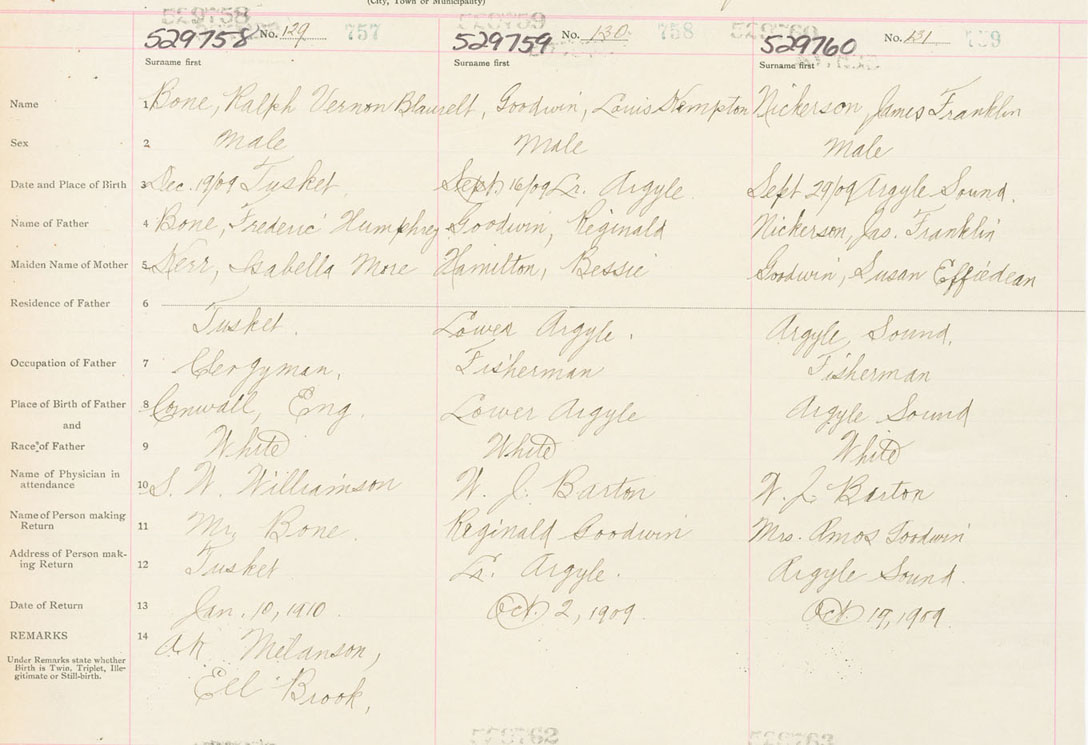 (City, Town or Municipality)
529758 529759 529760
529758 No. 129 757 529759 No. 130 758 529760 No. 131 759
Surname first Surname first Surname first
Name 1 Bone, Ralph Vernon Blauvelt, Goodwin, Louis Kempton Nickerson, James Franklin
Sex 2 Male Male Male
Date and Place of Birth 3 Dec. 19/09 Tusket Sept 16/09 Lr. Argyle Sept 29/09 Argyle Sound.
Name of Father 4 Bone, Frederic Humphrey Goodwin, Reginald Nickerson, Jas. Franklin
Maiden Name of Mother 5 Kerr, Isabella More Hamilton, Bessie Goodwin, Susan Effiedean
Residence of Father 6
Tusket. Lower Argyle. Argyle Sound.
Occupation of Father 7 Clergyman. Fisherman Fisherman
Place of Birth of Father 8 Cornwall, Eng. Lower Argyle Argyle Sound
and
Race of Father 9 White White White
Name of Physician in
attendance 10 S. W. Williamson W. J. Barton W. J. Barton
Name of Person making
Return 11 Mr. Bone. Reginald Goodwin Mrs. Amos Goodwin
Address of Person mak-
ing Return 12 Tusket Lr. Argyle. Argyle Sound.
Date of Return 13 Jan. 10, 1910. Oct. 2, 1909 Oct. 19, 1909
REMARKS 14
A. K. Melanson,
Under Remarks state whether
Birth is Twin, Triplet, Ille-
gitimate or Still-birth.
Ell Brook,
529762 529763